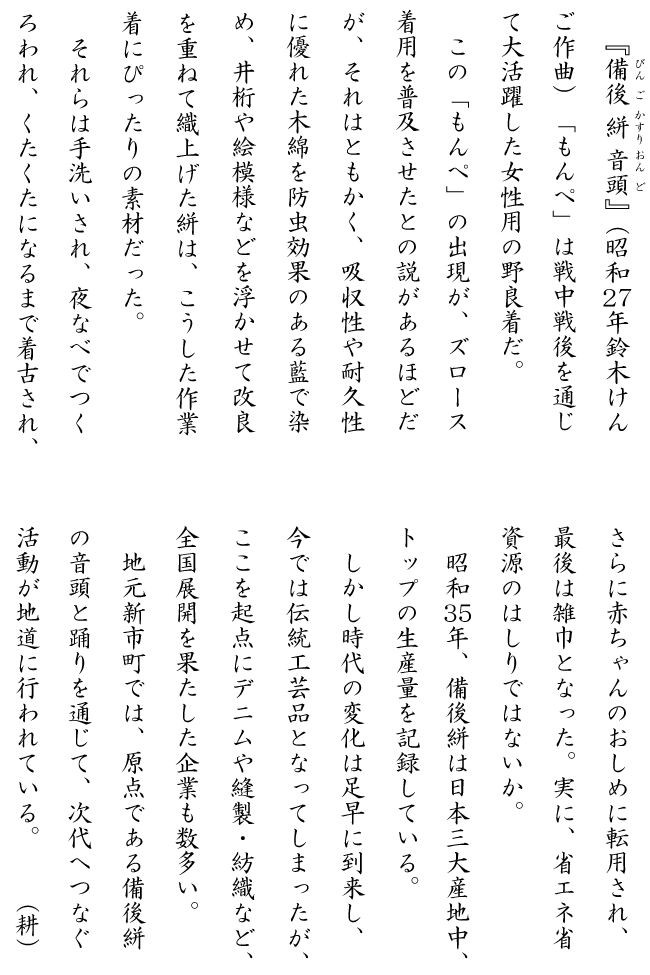 『備後絣音頭』（昭和27年鈴木けん
ご作曲）「もんぺ」は戦中戦後を通じ
て大活躍した女性用の野良着だ。
この「もんぺ」の出現が、ズロース
着用を普及させたとの説があるほどだ
が、それはともかく、吸収性や耐久性
に優れた木綿を防虫効果のある藍で染
め、井桁や絵模様などを浮かせて改良
を重ねて織上げた絣は、こうした作業
着にぴったりの素材だった。
それらは手洗いされ、夜なべでつく
ろわれ、くたくたになるまで着古され、
さらに赤ちゃんのおしめに転用され、
最後は雑巾となった。実に、省エネ省
資源のはしりではないか。
昭和35年、備後絣は日本三大産地中、
トップの生産量を記録している。
しかし時代の変化は足早に到来し、
今では伝統工芸品となってしまったが、
ここを起点にデニムや縫製・紡織など、
全国展開を果たした企業も数多い。
地元新市町では、原点である備後絣
の音頭と踊りを通じて、次代へつなぐ
活動が地道に行われている。（耕）